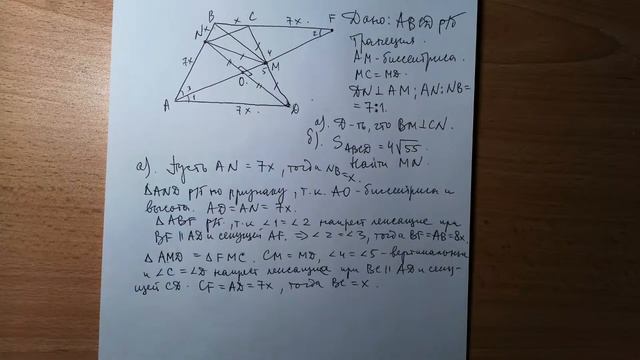 B x C 7x. F
N x 2
4
M
7x 5
O.
3
A 1 7x. D
Дано: ABCD р/б
трапеция.
AM - биссектриса.
MC = MD.
DN ⊥ AM; AN:NB =
= 7:1.
а). Д-ть, что BM ⊥ CN.
б). S ABCD = 4√55.
Найти MN.
а). Пусть AN = 7x, тогда NB = x.
△AND р/б по признаку, т.к. AO - биссектриса и
высота. AD = AN = 7x.
△ABF р/б, т.к. ∠1 = ∠2 накрест лежащие при
BF ∥ AD и секущей AF. ⇒ ∠2 = ∠3, тогда BF = AB = 8x.
△AMD = △FMC. CM = MD, ∠4 = ∠5 - вертикальные
и ∠C = ∠D накрест лежащие при BC ∥ AD и секу-
щей CD. CF = AD = 7x, тогда BC = x.